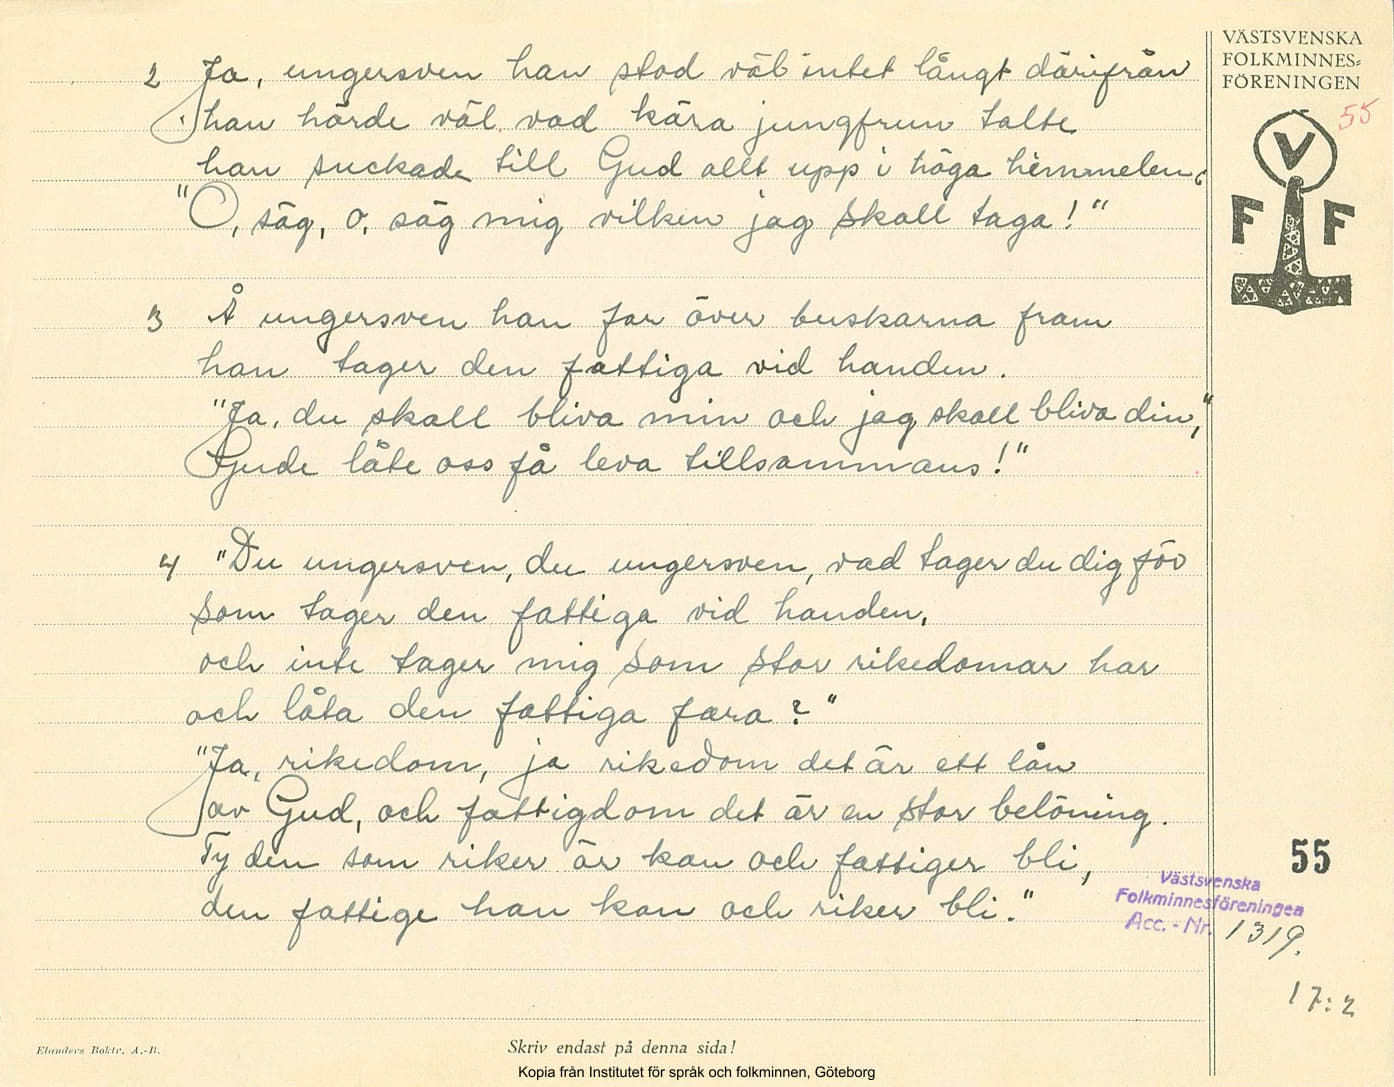 VÄSTSVENSKA
FOLKMINNES=
FÖRENINGEN
55
V
F F
2 Ja, ungersven han stod väl intet långt därifrån
han hörde väl vad kära jungfrun talte
han suckade till Gud allt upp i höga himmelen
"O, säg, o, säg mig vilken jag skall taga!"
3 Å ungersven han far över buskarna fram
han tager den fattiga vid handen.
"Ja, du skall bliva min och jag skall bliva din,"
Gude låte oss få leva tillsammans!"
4 "Du ungersven, du ungersven, vad tager du dig för
som tager den fattiga vid handen,
och inte tager mig som stor rikedomar har
och låta den fattiga fara?"
"Ja, rikedom, ja rikedom det är ett lån
av Gud, och fattigdom det är en stor belöning.
Ty den som riker är kan och fattiger bli,
den fattige han kan och riker bli."
55
Västsvenska
Folkminnesföreningen
Acc. - Nr. 1319.
17:2
Elanders Boktr. A.-B.
Skriv endast på denna sida!
Kopia från Institutet för språk och folkminnen, Göteborg